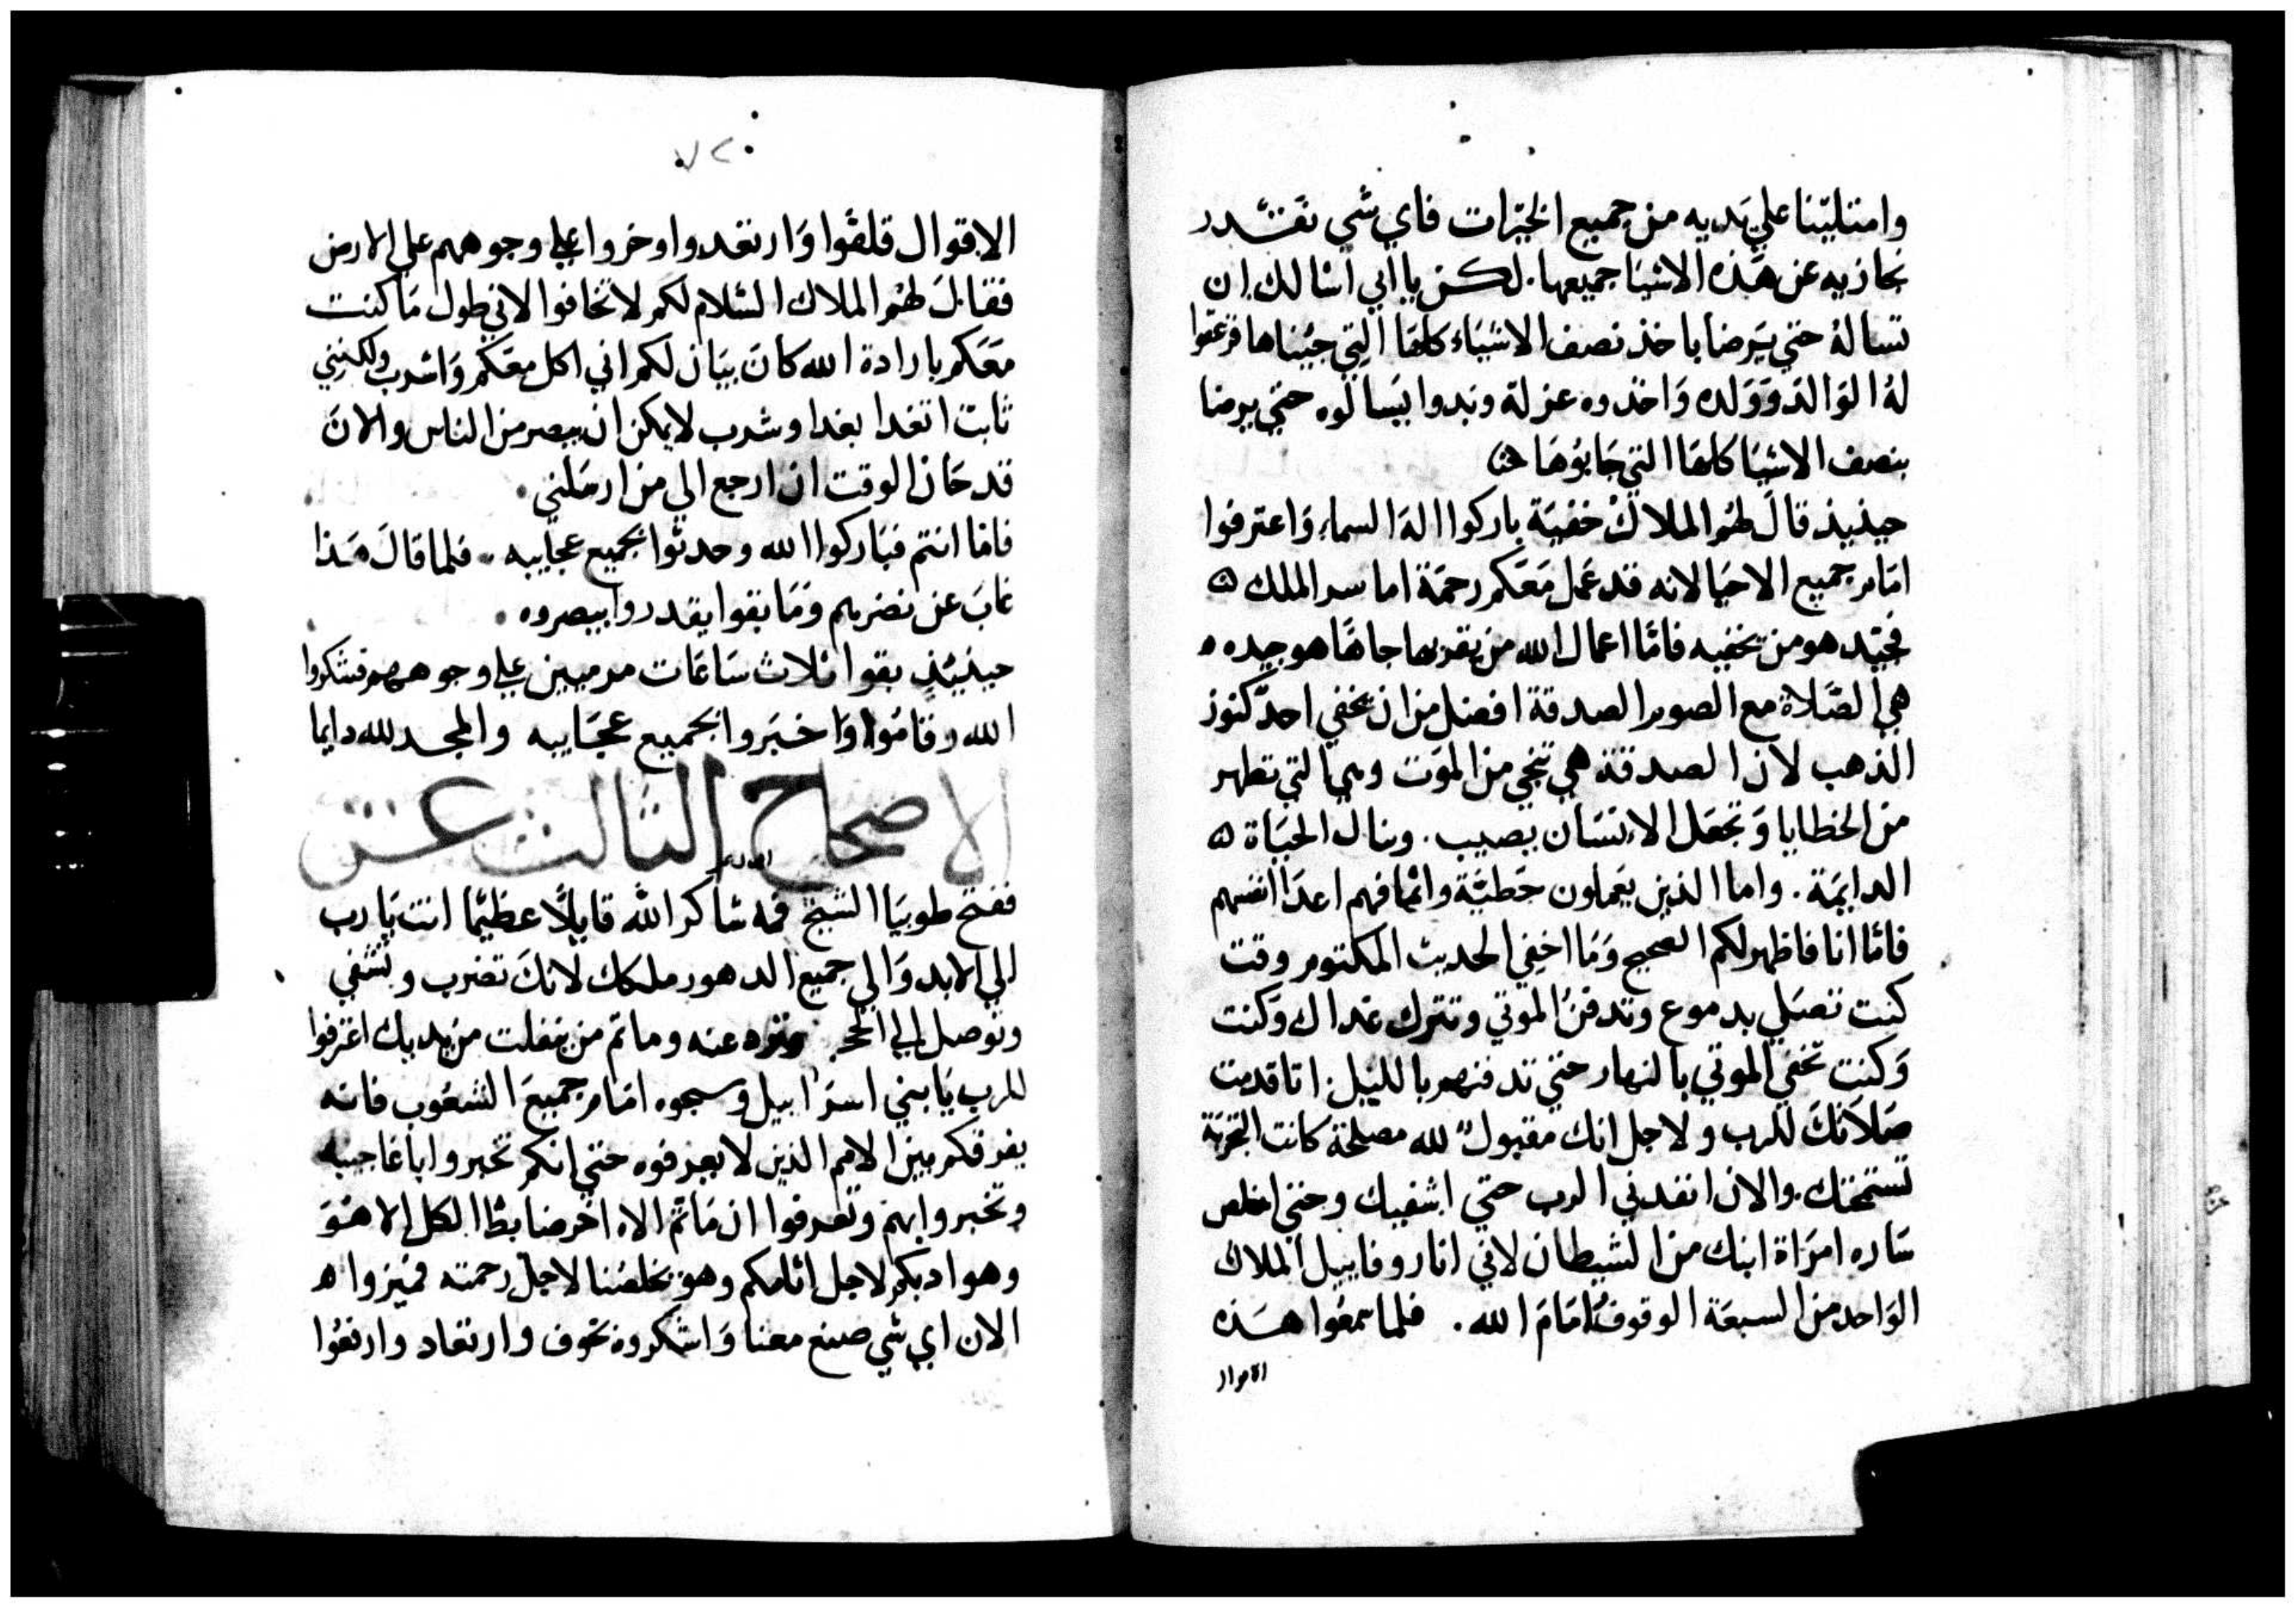 وامتليّنا علي يديه من جميع الخيّرات فاي شي نقتدر
نجازيه عن هذه الاشيا جميعها. لكن يا ابي اسالك ان
تساله حتي يرضا ياخذ نصف الاشياء كلها التي جيناها فزعقوا
له الوالد وولده واخذوه عزلة وبدوا يسالوه حتي يرضا
بنصف الاشيا كلها التي جابوها
حينيذ قال لهم الملاك خفية باركوا اله السماء واعترفوا
امام جميع الاحيا لانه قد عمل معكم رحمة اما سر الملك
فجيد هو من يخفيه فاما اعمال الله من يقر بها جاها هو جيده
هي الصلاة مع الصوم الصدقة افضل من ان يخفي احد كنوز
الذهب لان الصدقة هي تنجي من الموت وهي التي تطهر
من الخطايا وتجعل الانسان يصيب. وينال الحياة
الدايمة. واما الذين يعملون خطية واثما فهم اعدا انفسهم
فاما انا فاظهر لكم الصحيح وما اخفي الحديث المكتوم وقت
كنت تصلي بدموع وتدفن الموتي وتترك غداك وكنت
وكنت تخفي الموتي بالنهار حتي تدفنهم بالليل انا قدمت
صلاتك للرب ولاجل انك مقبول لله مصلحة كانت التجربة
تستمحنك. والان انفدني الرب حتي اشفيك وحتي اخلص
ساره امراة ابنك من الشيطان لاني انا روفاييل الملاك
الواحد من السبعة الوقوف امام الله. فلما سمعوا هذه
الاقوال
٧٢
الاقوال قلقوا وارتعدوا وخروا علي وجوههم علي الارض
فقال لهم الملاك السلام لكم لا تخافوا لاني طول ما كنت
معكم بارادة الله كان بيان لكم اني اكل معكم واشرب ولكنني
ثابت اتغدا بغدا وشرب لا يمكن ان يبصر من الناس والان
قد حان الوقت ان ارجع الي من ارسلني.
فاما انتم فباركوا الله وحدثوا بجميع عجايبه. فلما قال هذا
غاب عن نضرهم وما بقوا يقدروا يبصروه.
حينيذ بقوا ثلاث ساعات مرميين علي وجوههم فشكروا
الله وقاموا واخبروا بجميع عجايبه والمجد لله دايما
الاصحاح الثالث عشر
ففتح طوبيا الشيخ فمه شاكر الله قايلا عظيما انت يا رب
الي الابد والي جميع الدهور ملكك لانك تضرب وتشفي
وتوصل الي عنه وما تم من يفلت من يديك اعترفوا
للرب يا بني اسراييل وسبحوه امام جميع الشعوب فانه
يفرقكم بين الامم الذين لا يعرفوه حتي انكم تخبروا باعاجيبه
وتخبروا بهم وتعرفوا ان ما تم الاه اخر ضابط الكل الا هو
وهو ادبكم لاجل اثامكم وهو يخلصنا لاجل رحمته فميزوا
الان اي شي صنع معنا واشكروه بخوف وارتعاد وارتفعوا